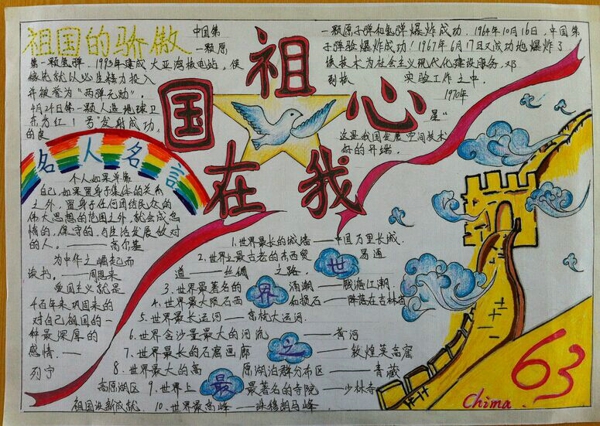 祖国的骄傲
中国第
一颗原
一颗原子弹和氢弹爆炸成功。1964年10月16日,中国第
子弹爆炸成功!1967年6月17日又成功地爆炸了
1993年建成大亚湾核电站,使
核技术为社会主义现代化建设服务,邓
实验工作之中。
并被誉为“两弹元勋”。
1970年
4月24日第一颗人造地球卫
星“
东方红1号”发射成功,
这是我国发展“空间技术”
好的开端。
祖国在我心
名人名言
个人如果单靠
自己,如果置身于集体的关系
之外,置身于任何团结民众的
伟大思想的范围之外,就会成怠
惰的,保守的,与生活发展敌对
的人。——高尔基
为中华之崛起而
读书。——周恩来
爱国主义就是
千百年来巩固来的
对自己祖国的一
种最深厚的
感情。——
列宁
世界之最
1.世界最长的城墙——中国万里长城。
2.世界上最古老的东西贸易通
道——丝绸之路。
3.世界最著名的海潮——钱塘江潮。
4.世界最大陨石雨——陨落在吉林省
5.世界最长运河——京杭大运河。
6.世界含沙量最大的河流——黄河
7.世界最长的石窟画廊——敦煌莫高窟
8.世界最大的高原湖泊群分布区——青藏
高原湖区
9.世界上最著名的寺院——少林寺
祖国说新成就
10.世界最高峰——珠穆朗玛峰
63
China